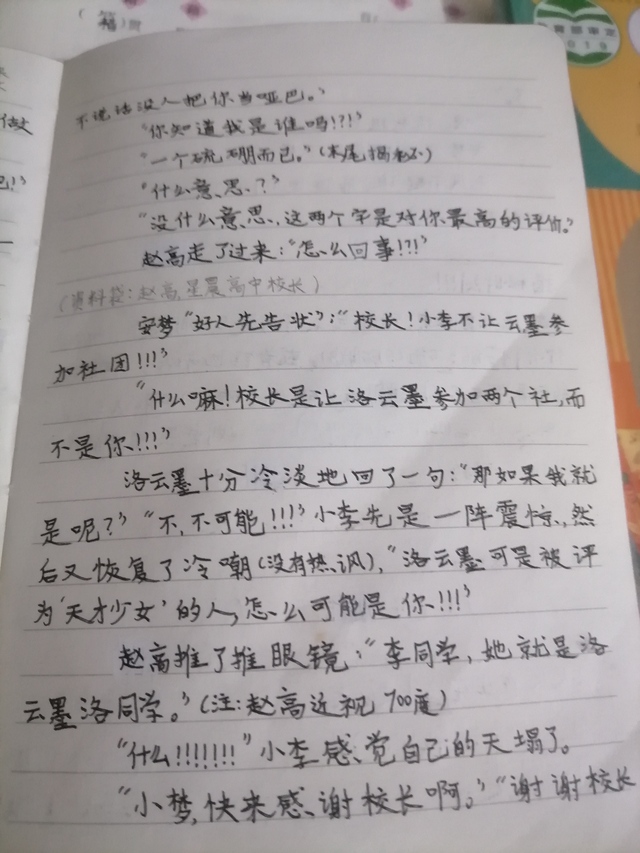 （箱）
育部审定
2019
做
不说话没人把你当哑巴。”
“你知道我是谁吗!?!”
“一个硫硼而已。”(末尾揭秘)
“什么意思?”
“没什么意思,这两个字是对你最高的评价。”
赵高走了过来:“怎么回事!?!”
(资料袋:赵高,星晨高中校长)
安梦“好人先告状”:“校长!小李不让云墨参
加社团!!!”
“什么嘛!校长是让洛云墨参加两个社,而
不是你!!!”
洛云墨十分冷淡地回了一句:“那如果我就
是呢?”“不,不可能!!!”小李先是一阵震惊,然
后又恢复了冷嘲(没有热讽),“洛云墨可是被评
为‘天才少女’的人,怎么可能是你!!!”
赵高推了推眼镜:“李同学,她就是洛
云墨洛同学。”(注:赵高近视700度)
“什么!!!!!!!”小李感觉自己的天塌了。
“小梦,快来感谢校长啊。”“谢谢校长